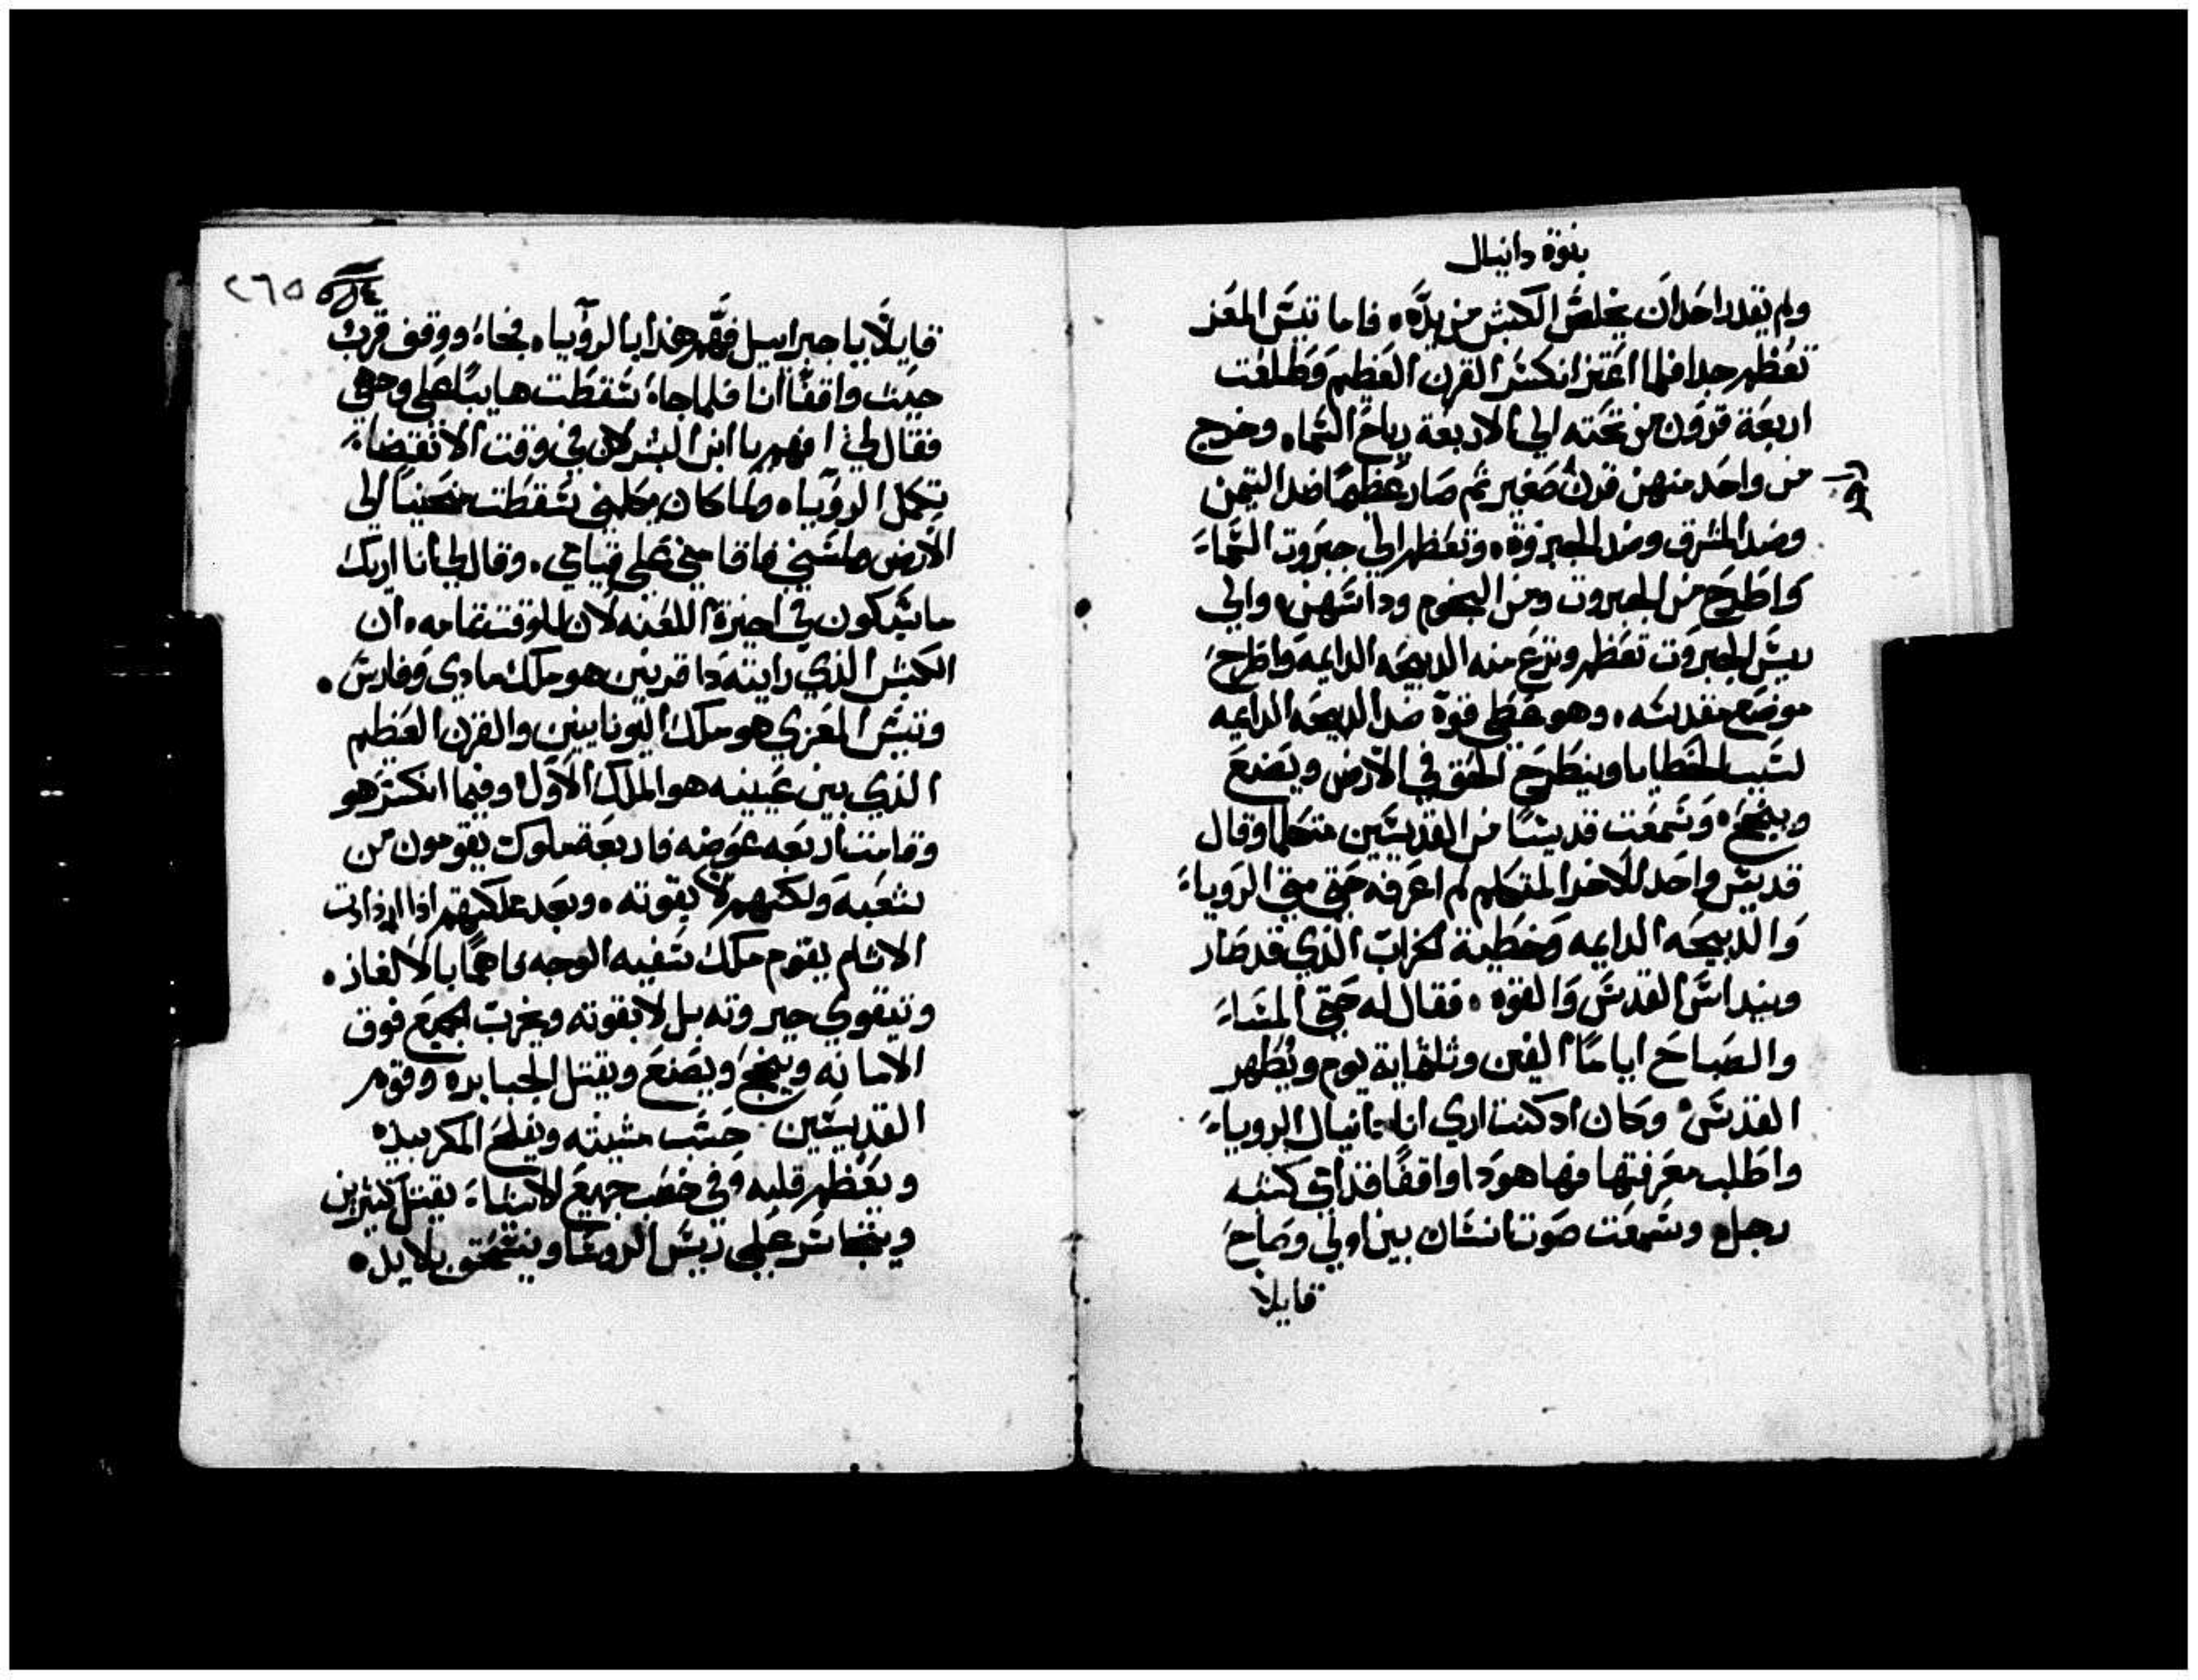 بنوة دانيال
ولم يقدر احد ان يخلص الكبش من يده ه فاما تيس المعز
تعظم جدا فلما اعتز انكسر القرن العظيم وطلعت
اربعة قرون من تحته الي الاربعة رياح السماء وخرج
من واحد منهن قرن صغير ثم صار عظيما ضد التيمن
وضد المشرق وضد الجبروة ه وتعظم الي جبروت السماء
واطرح من الجبروت ومن النجوم وداسهن ه والي
ريس الجبروت تعظم ونزع منه الدبيحه الدايمه واطرح
موضع مقدسه ه وهو عطي قوة ضد الدبيحه الدايمه
لسبب الخطايا وينطرح الحق في الارض ويصنع
وينجح ه وسمعت قديسا من القديسين متكلما وقال
قديس واحد للاخر المتكلم لم اعرفه حتي متي الروياء
والدبيحه الدايمه وخطية الخراب الذي قد صار
وينداس القدس والقوه ه فقال له حتي المساء
والصباح اياما الفين وثلثماية يوم ويطهر
القدس ه وكان اد كنت اري انا دانيال الروياء
واطلب معرفتها فها هودا واقفا قدامي كشبه
رجل ه وسمعت صوت انسان بين اولي وصاح
قايلا
٢٦٥
قايلا يا جبراييل فهم هذا بالروياء ه فجاء ووقف قرب
حيث واقفا انا فلما جاء سقطت هايبا علي وجهي
فقال لي افهم يا ابن البشر لان في وقت الانقضاء
تكمل الروياء ه ولما كان يكلمني سقطت منحنيا الي
الارض ولمسني فاقامني علي قيامي ه وقال لي انا اريك
ما سيكون في اخيرة اللعنه لان للوقت تمامه ه ان
الكبش الذي رايته دا قرنين هو ملك مادي وفارس ه
وتيس المعزي هو ملك اليونانيين والقرن العظيم
الذي بين عينيه هو الملك الاول ه وفيما انكسر هو
وقامت اربعه عوضه فاربعة ملوك يقومون من
شعبه ولكنهم لا بقوته ه وبعد ملكهم اذا ازدادت
الاثام يقوم ملك سفيه الوجه فاهما بالالغاز ه
وتتقوي جبروته بل لا بقوته ويخرب الجميع فوق
الامانه وينجح ويصنع ويقتل الجبابره وقوم
القديسين حسب مشيته ويفلح المكر بيده
ويعظم قلبه وفي خصب جميع الاشياء يقتل كثيرين
علي ريس الروسا وينسحق بلا يد ه